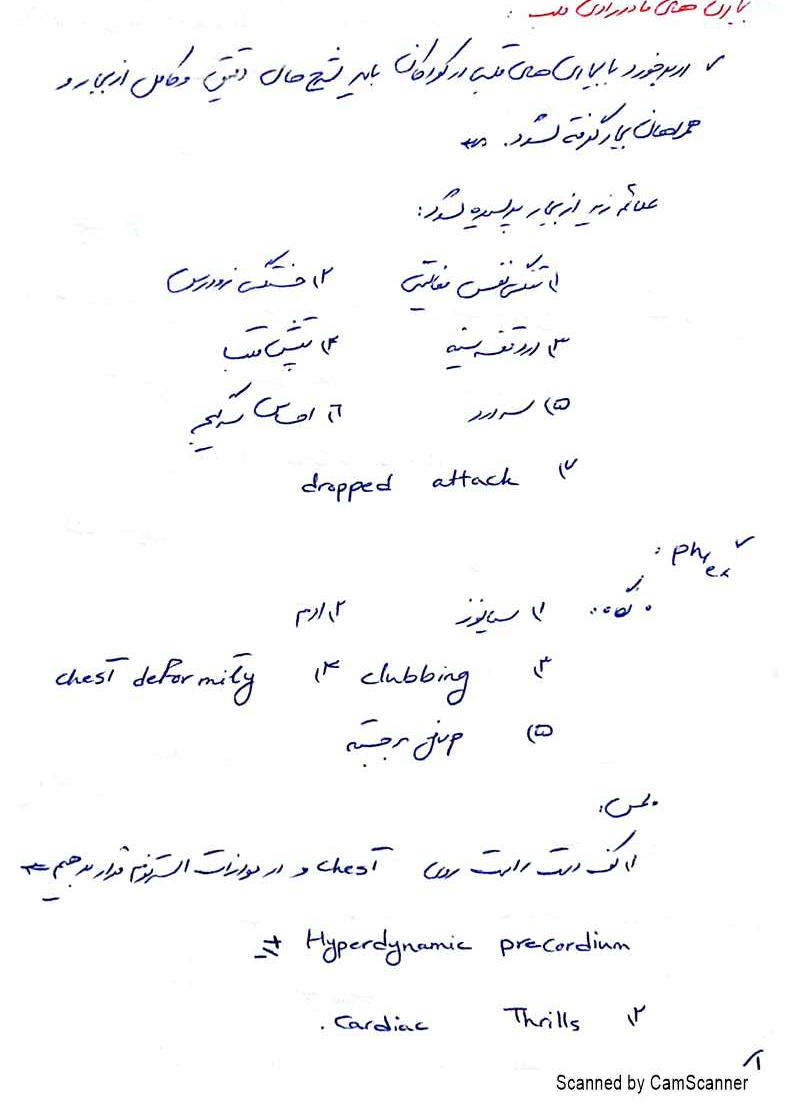 بیماری های مادرزادی قلب :
✓ در برخورد با بیماری های قلب در کودکان باید شرح حال دقیق و کامل از بیمار و
همراهان بیمار گرفته شود.
علائم زیر از بیمار پرسیده شود:
۱) تنگی نفس فعالیتی ۲) خستگی زودرس
۳) درد قفسه سینه ۴) تپش قلب
۵) سردرد ۶) احساس سرگیجه
۷) dropped attack
✓ ph, ex :
نگاه: ۱) سیانوز ۲) ادم
۳) clubbing ۴) chest deformity
۵) نبض برجسته
لمس:
۱) کف دست راست روی chest و در موازات استرنوم قرار می دهیم ⇐
Hyperdynamic precordium
۲) Cardiac Thrills.
۱
Scanned by CamScanner